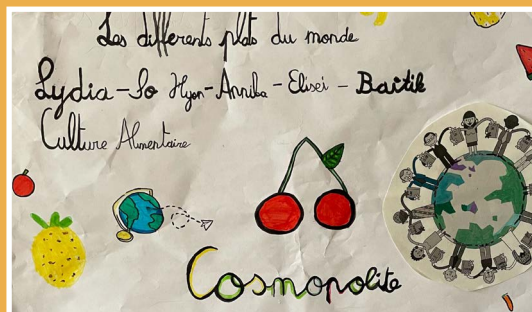 Les différents plats du monde
Lydia - So Hyon - Anniba - Elisei - Baítik
Culture Alimentaire
Cosmopolite